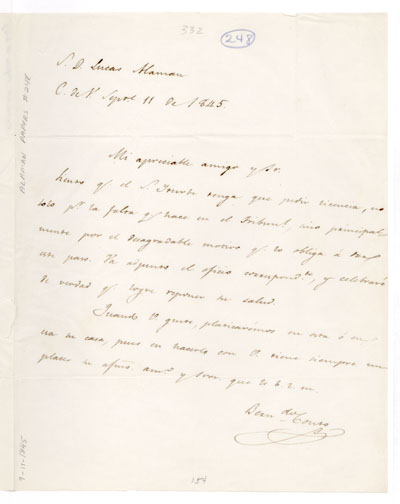 332
248
S. D. Lucas Alaman
C. de V. Sept. 11 de 1845.
Mi apreciable amigo y Sr.
Siento q. el S. tenga que pedir licencia, no
solo pr. la falta q. hace en el Tribunal, sino principal
mente por el desagradable motivo q. lo obliga á dar
este paso. Va adjunto el oficio correspondte. y celebraré
de verdad q. logre reponer su salud.
Cuando V. guste, platicaremos en esta ó en
su casa, pues en hacerlo con V. tiene siempre un
placer su afmo. amo. y Svor. que b. s. m.
Bern.do Couto
184
ALAMAN PAPERS # 248
9-11-1845